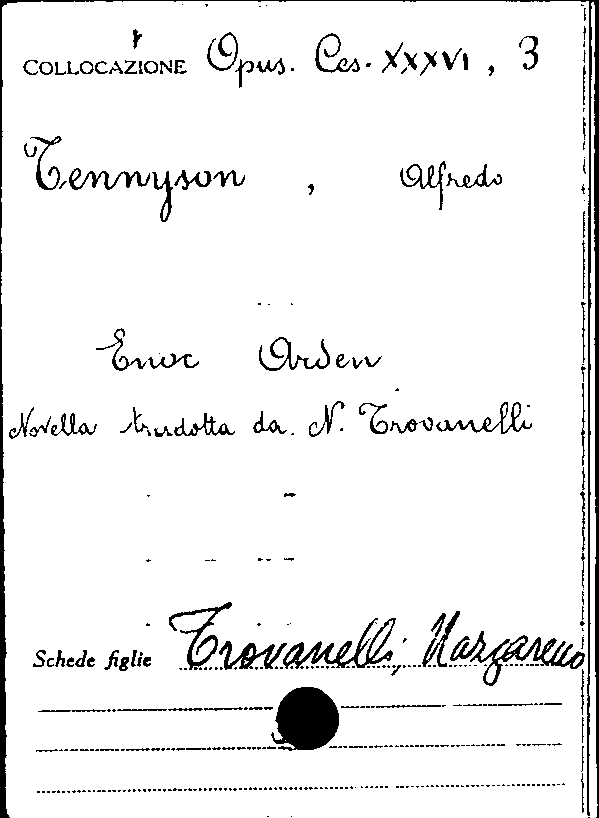 COLLOCAZIONE Opus. Ces. XXXVI, 3
Tennyson, Alfredo
Enoc Arden
Novella tradotta da N. Trovanelli
Schede figlie Trovanelli, Nazzareno